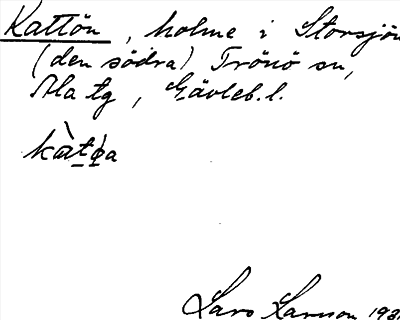 Kattön, holme i Storsjön
(den södra) Trönö sn,
Ala tg, Gävleb.l.
Lars Larsson